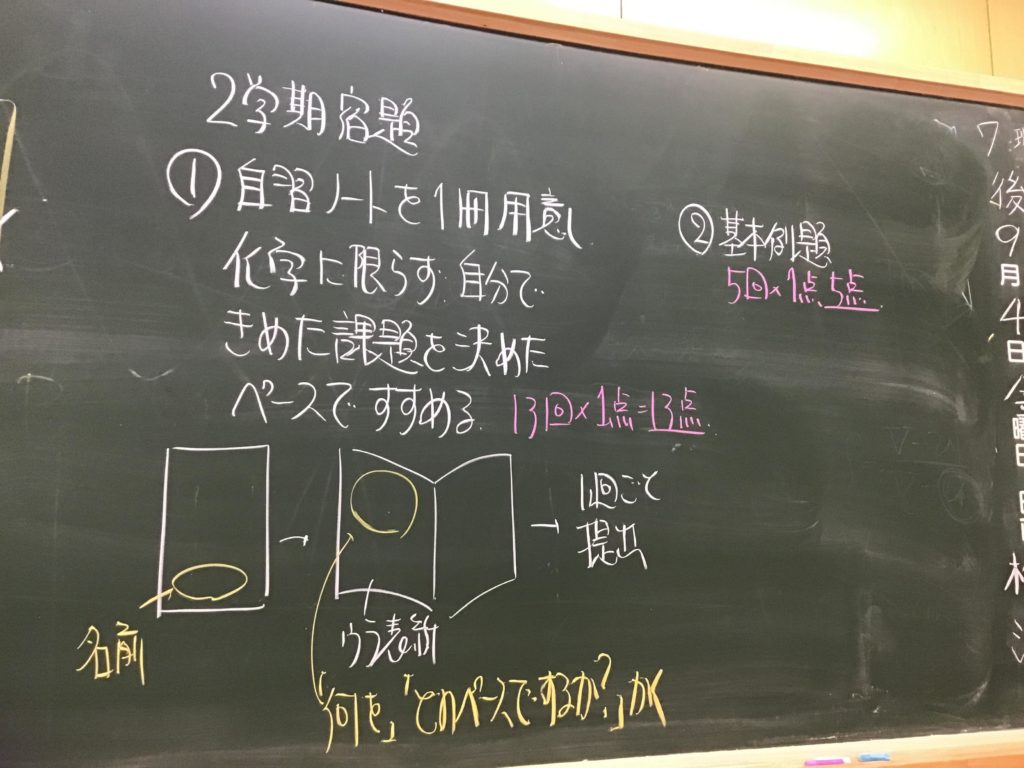 2学期宿題
① 自習ノートを1冊用意し
化学に限らず 自分で
きめた課題を決めた
ペースですすめる
13回×1点=13点
② 基本例題
5回×1点 5点
名前
ウラ表紙
1回ごと
提出
「何を」「どのペースでするか?」かく
7
後
9
月
4
日
金
曜
日